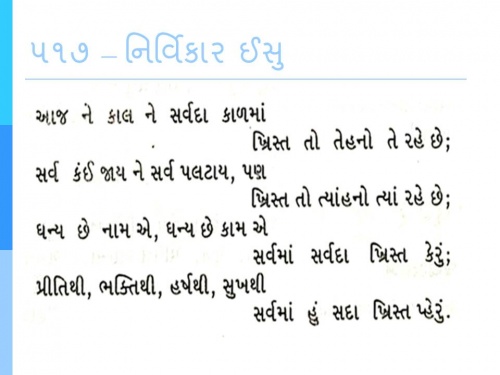 ૫૧૭ – નિર્વિકાર ઈસુ
આજ ને કાલ ને સર્વદા કાળમાં
ખ્રિસ્ત તો તેહનો તે રહે છે;
સર્વ કંઈ જાય ને સર્વ પલટાય, પણ
ખ્રિસ્ત તો ત્યાંહનો ત્યાં રહે છે;
ધન્ય છે નામ એ, ધન્ય છે કામ એ
સર્વમાં સર્વદા ખ્રિસ્ત કેરું;
પ્રીતિથી, ભક્તિથી, હર્ષથી, સુખથી
સર્વમાં હું સદા ખ્રિસ્ત પ્હેરું.